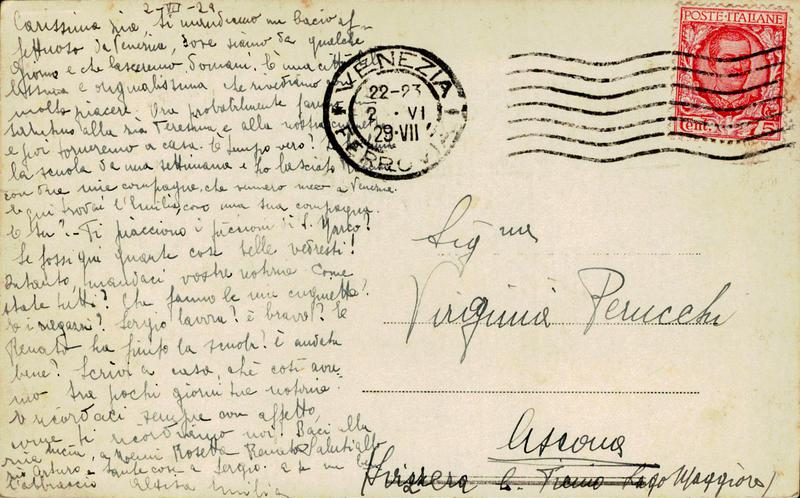 2-VI-29
Carissima zia, ti mandiamo un bacio af-
fettuoso da Venezia, dove siamo da qualche
giorno e che lasceremo domani. È una città
bellissima e originalissima, che rivediamo
molto piacere. Ora probabilmente
alla zia Teresina e alla nostra
e poi torneremo a casa. È tempo vero?
la scuola da una settimana e ho lasciato
con due mie compagne, che vennero meco a Venezia
e qui trovai l'Emilia, con una sua compagna.
E tu? - Ti piacciono i piccioni di S. Marco?
Se fossi qui quante cose belle vedresti!
Intanto, mandaci vostre notizie. Come
state tutti? Che fanno le mie cuginette?
E i ragazzi? Sergio lavora? è bravo? E
Renato ha finito la scuola? È andata
bene? Scrivi a casa, chè così avre-
mo tra pochi giorni tue notizie.
Ricordaci sempre con affetto,
come ti ricordiamo noi! Baci alla
zia Lucia, a Noemi Rosetta Renato. Saluti allo
zio Arturo e tante cose a Sergio. a te un
abbraccio Emilia
POSTE ITALIANE
Cent. 75
VENEZIA
22-23
2 · VI
29·VII
FERROVIA
Sig.na
Virginia Perucchi
Ascona
(Svizzera C. Ticino Lago Maggiore)